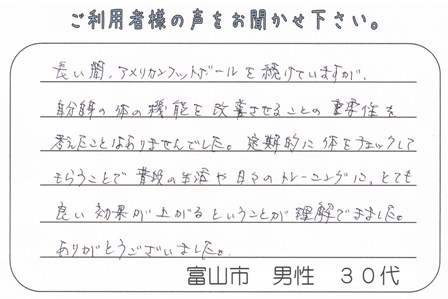 ご利用者様の声をお聞かせ下さい。
長い間、アメリカンフットボールを続けていますが、
自分自身の体の機能を改善させることの重要性を
考えたことはありませんでした。定期的に体をチェックして
もらうことで普段の生活や日々のトレーニングに、とても
良い効果が上がるということが理解できました。
ありがとうございました。
富山市　男性　３０代